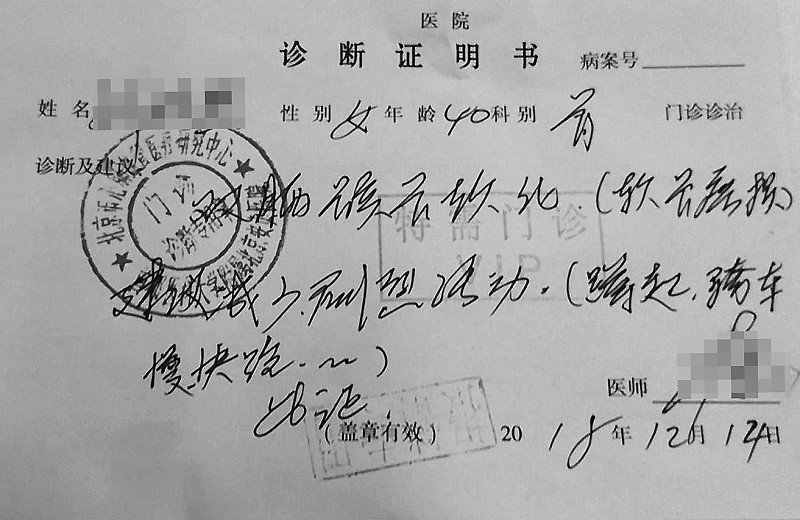 医院
诊断证明书 病案号
姓名 性别 女 年龄 40 科别 骨 门诊诊治
诊断及建议
髌骨软化.(软骨磨损)
特需门诊
VIP
建议减少剧烈活动.(蹲起.骑车
慢快跑.~~)
此证.
医师
(盖章有效) 2018年12月12日